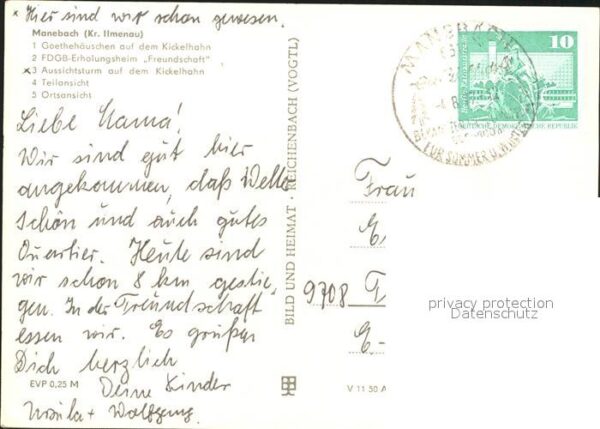 x Hier sind wir schon gewesen.
Manebach (Kr. Ilmenau)
1 Goethehäuschen auf dem Kickelhahn
2 FDGB-Erholungsheim „Freundschaft"
x 3 Aussichtsturm auf dem Kickelhahn
4 Teilansicht
5 Ortsansicht
Liebe Mama!
Wir sind gut hier
angekommen, daß Wetter
schön und auch gutes
Quartier. Heute sind
wir schon 8 km gestie-
gen. In der Freundschaft
essen wir. Es grüßen
Dich herzlich
Deine Kinder
Ursula + Wolfgang.
EVP 0,25 M
BILD UND HEIMAT · REICHENBACH (VOGTL)
MANEBACH
FÜR SOMMER U. WINTER
10
DEUTSCHE DEMOKRATISCHE REPUBLIK
Frau
E
9708 T
E.-
V 11 50 A
privacy protection
Datenschutz